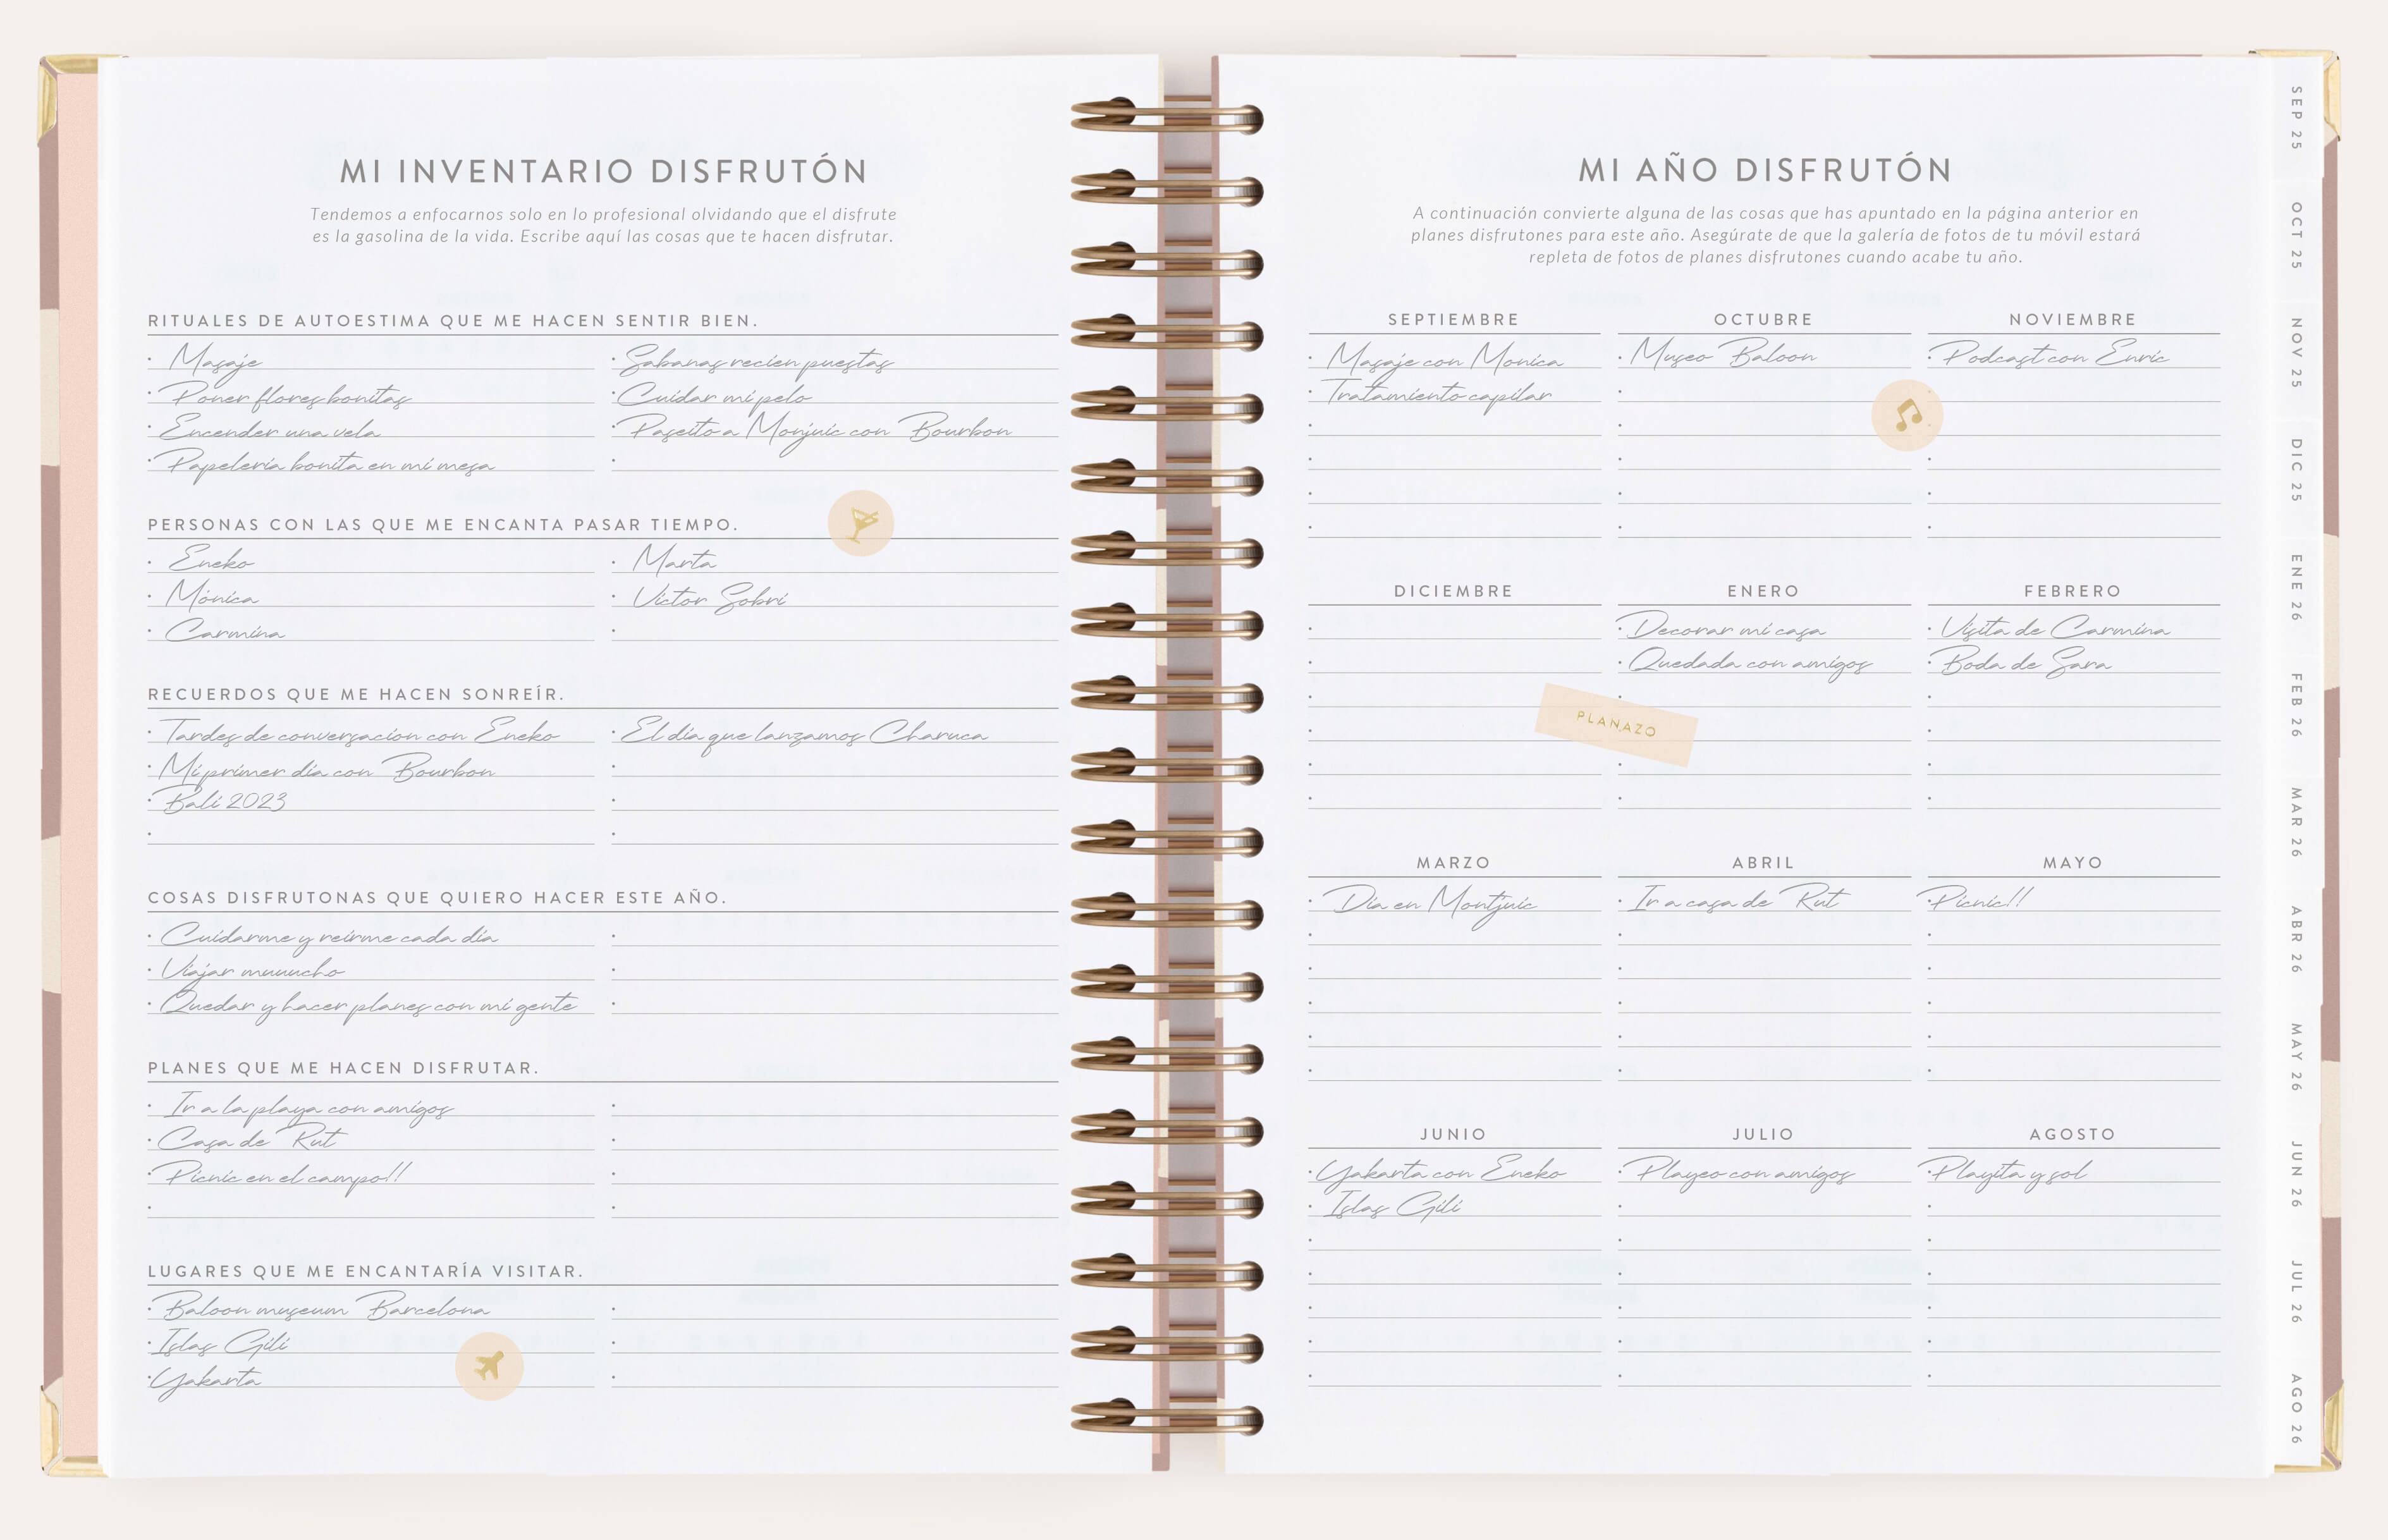 MI INVENTARIO DISFRUTÓN
Tendemos a enfocarnos solo en lo profesional olvidando que el disfrute
es la gasolina de la vida. Escribe aquí las cosas que te hacen disfrutar.
RITUALES DE AUTOESTIMA QUE ME HACEN SENTIR BIEN.
Masaje
Poner flores bonitas
Encender una vela
Papelería bonita en mi mesa
Sabanas recien puestas
Cuidar mi pelo
Paseito a Monjuic con Bourbon
PERSONAS CON LAS QUE ME ENCANTA PASAR TIEMPO.
Eneko
Mónica
Carmina
Marta
Victor Sobri
RECUERDOS QUE ME HACEN SONREÍR.
Tardes de conversacion con Eneko
Mi primer día con Bourbon
Bali 2023
El día que lanzamos Charuca
COSAS DISFRUTONAS QUE QUIERO HACER ESTE AÑO.
Cuidarme y reírme cada día
Viajar muuucho
Quedar y hacer planes con mi gente
PLANES QUE ME HACEN DISFRUTAR.
Ir a la playa con amigos
Casa de Rut
Picnic en el campo!!
LUGARES QUE ME ENCANTARÍA VISITAR.
Baloon museum Barcelona
Islas Gili
Yakarta
MI AÑO DISFRUTÓN
A continuación convierte alguna de las cosas que has apuntado en la página anterior en
planes disfrutones para este año. Asegúrate de que la galería de fotos de tu móvil estará
repleta de fotos de planes disfrutones cuando acabe tu año.
SEPTIEMBRE
Masaje con Monica
Tratamiento capilar
OCTUBRE
Museo Baloon
NOVIEMBRE
Podcast con Enric
DICIEMBRE
PLANAZO
ENERO
Decorar mi casa
Quedada con amigos
FEBRERO
Visita de Carmina
Boda de Sara
MARZO
Día en Montjuic
ABRIL
Ir a casa de Rut
MAYO
Picnic!!
JUNIO
Yakarta con Eneko
Islas Gili
JULIO
Playeo con amigos
AGOSTO
Playita y sol
SEP 25
OCT 25
NOV 25
DIC 25
ENE 26
FEB 26
MAR 26
ABR 26
MAY 26
JUN 26
JUL 26
AGO 26